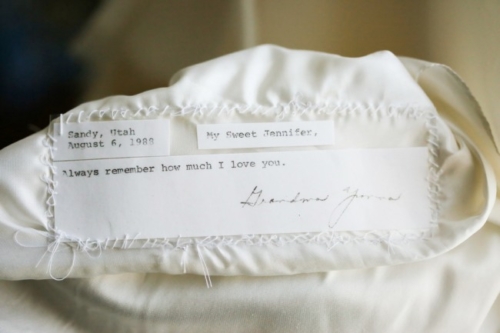 Sandy, Utah
August 6, 1988
My Sweet Jennifer,
Always remember how much I love you.
Grandma